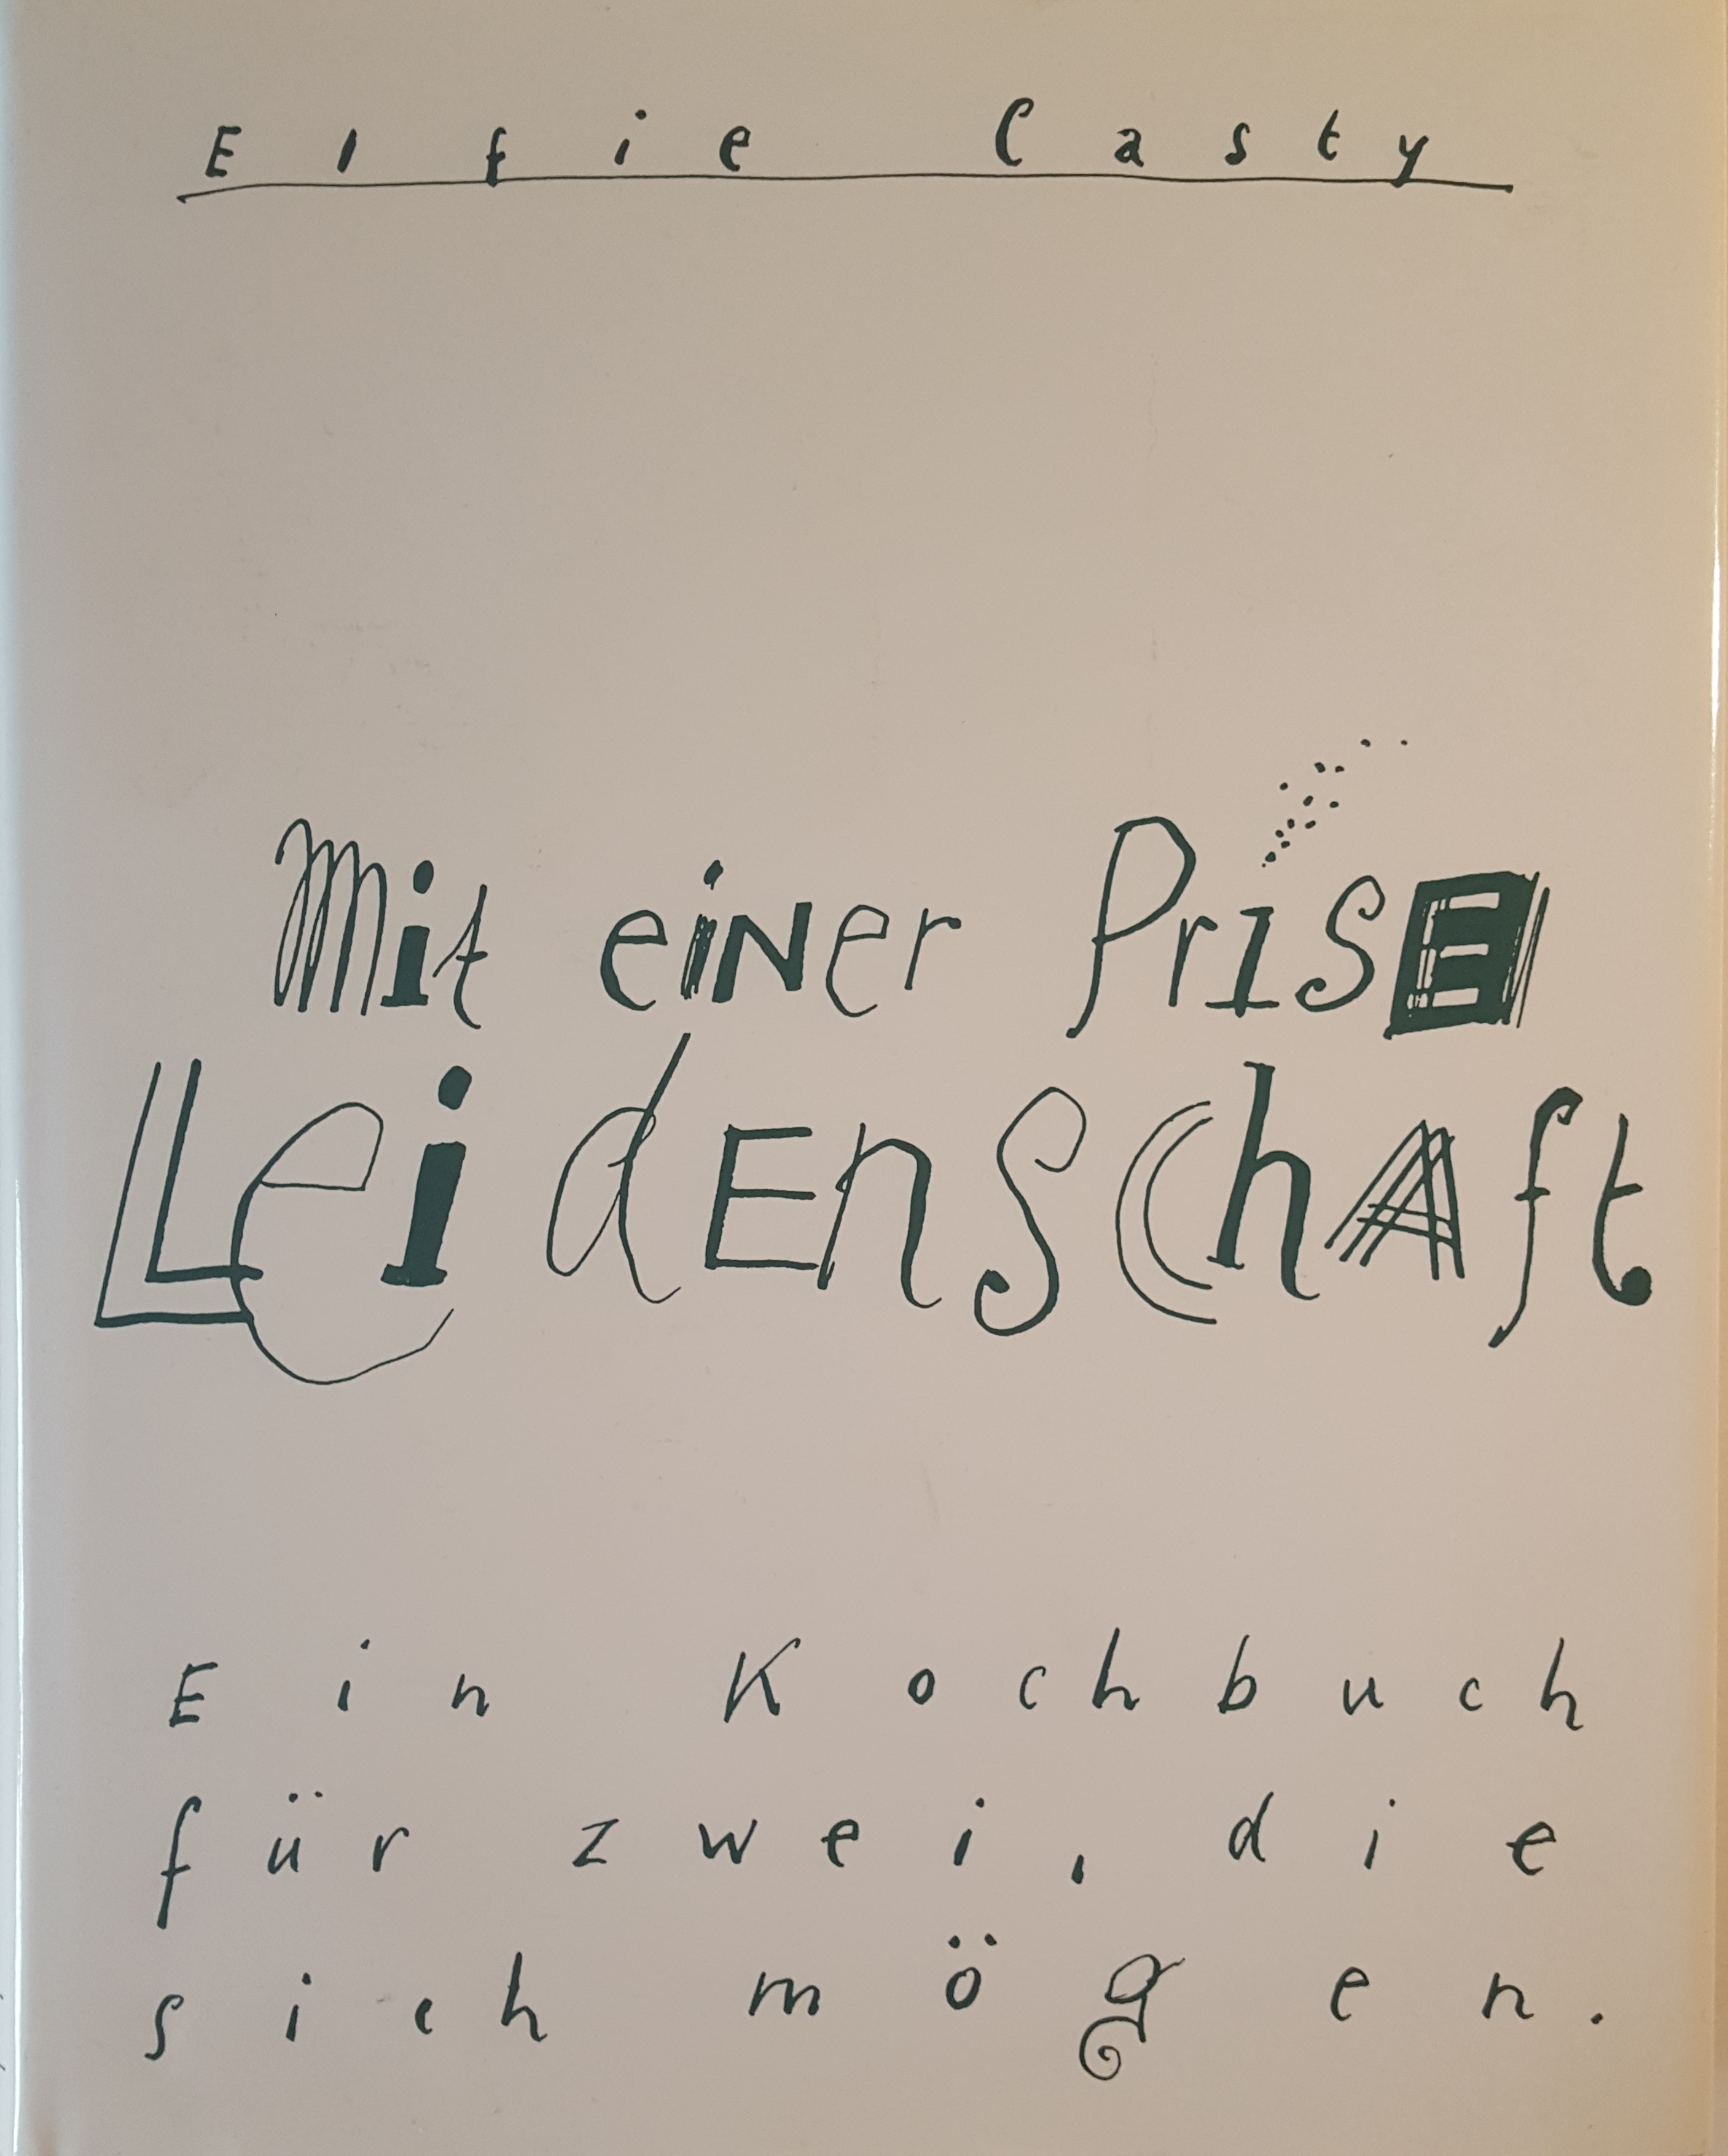 Elfie Casty
Mit einer Prise
Leidenschaft
Ein Kochbuch
für zwei, die
sich mögen.